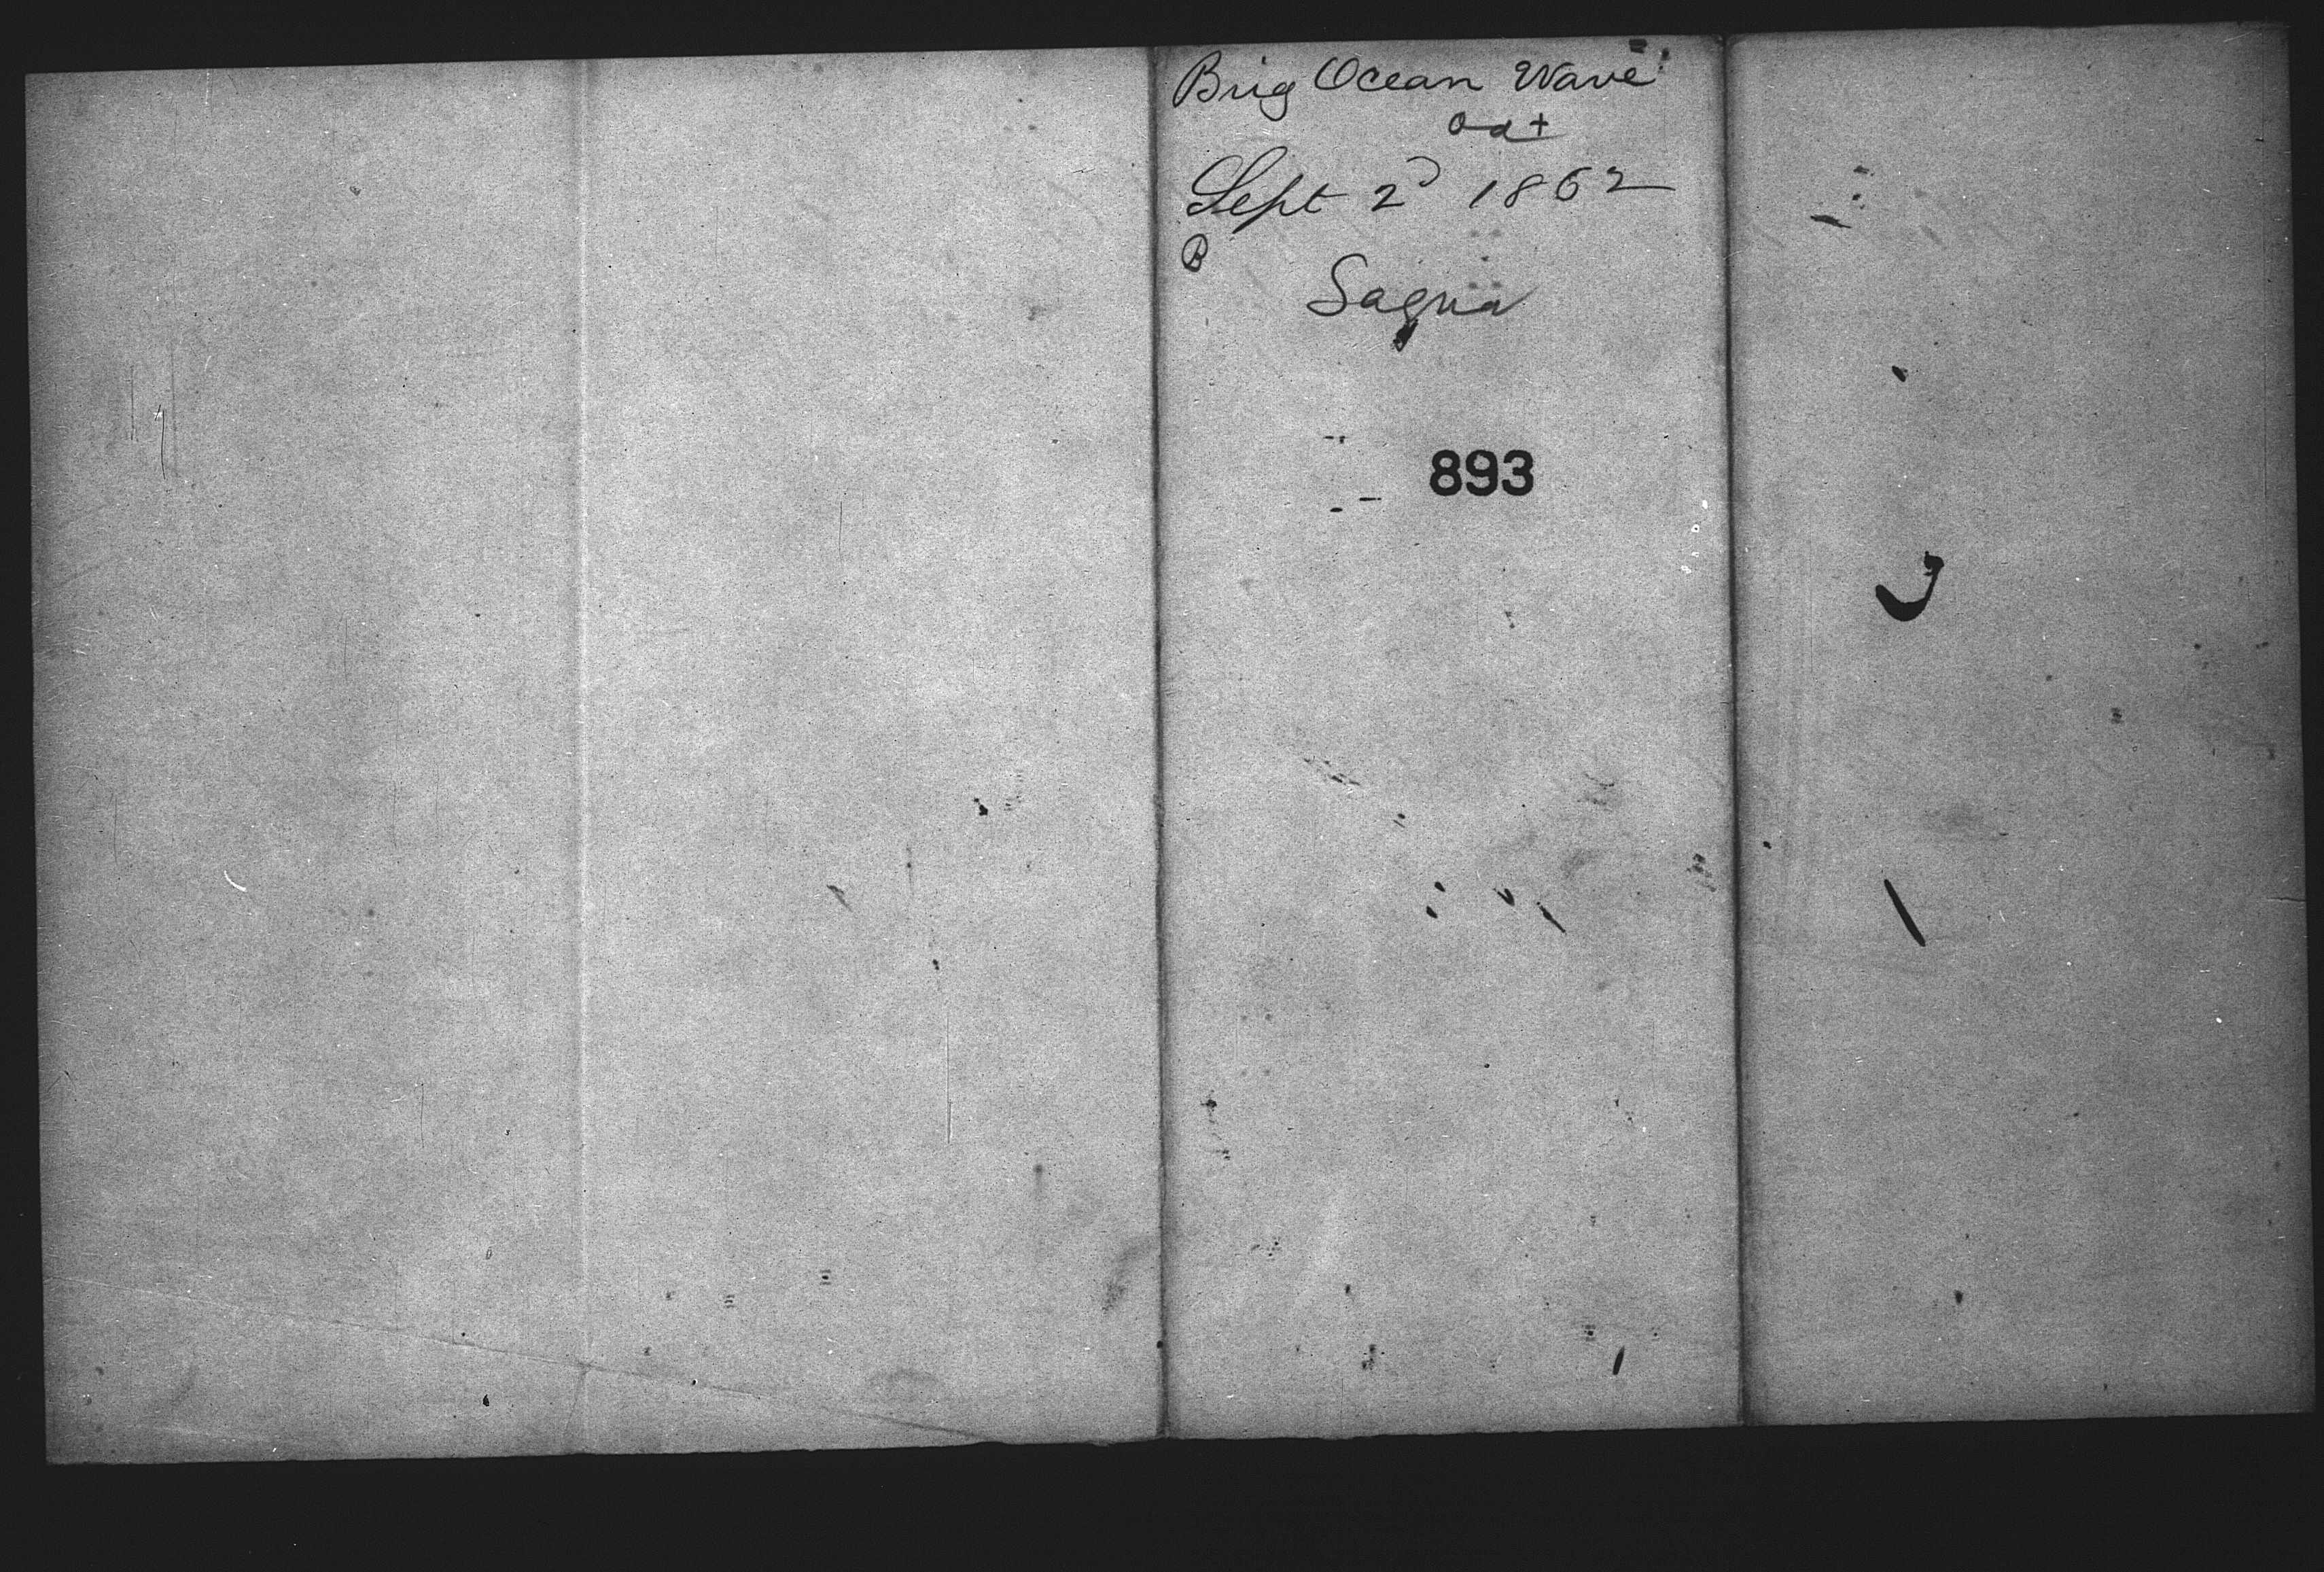 Brig Ocean Wave
Sept 2d 1862
B
Sagua
893